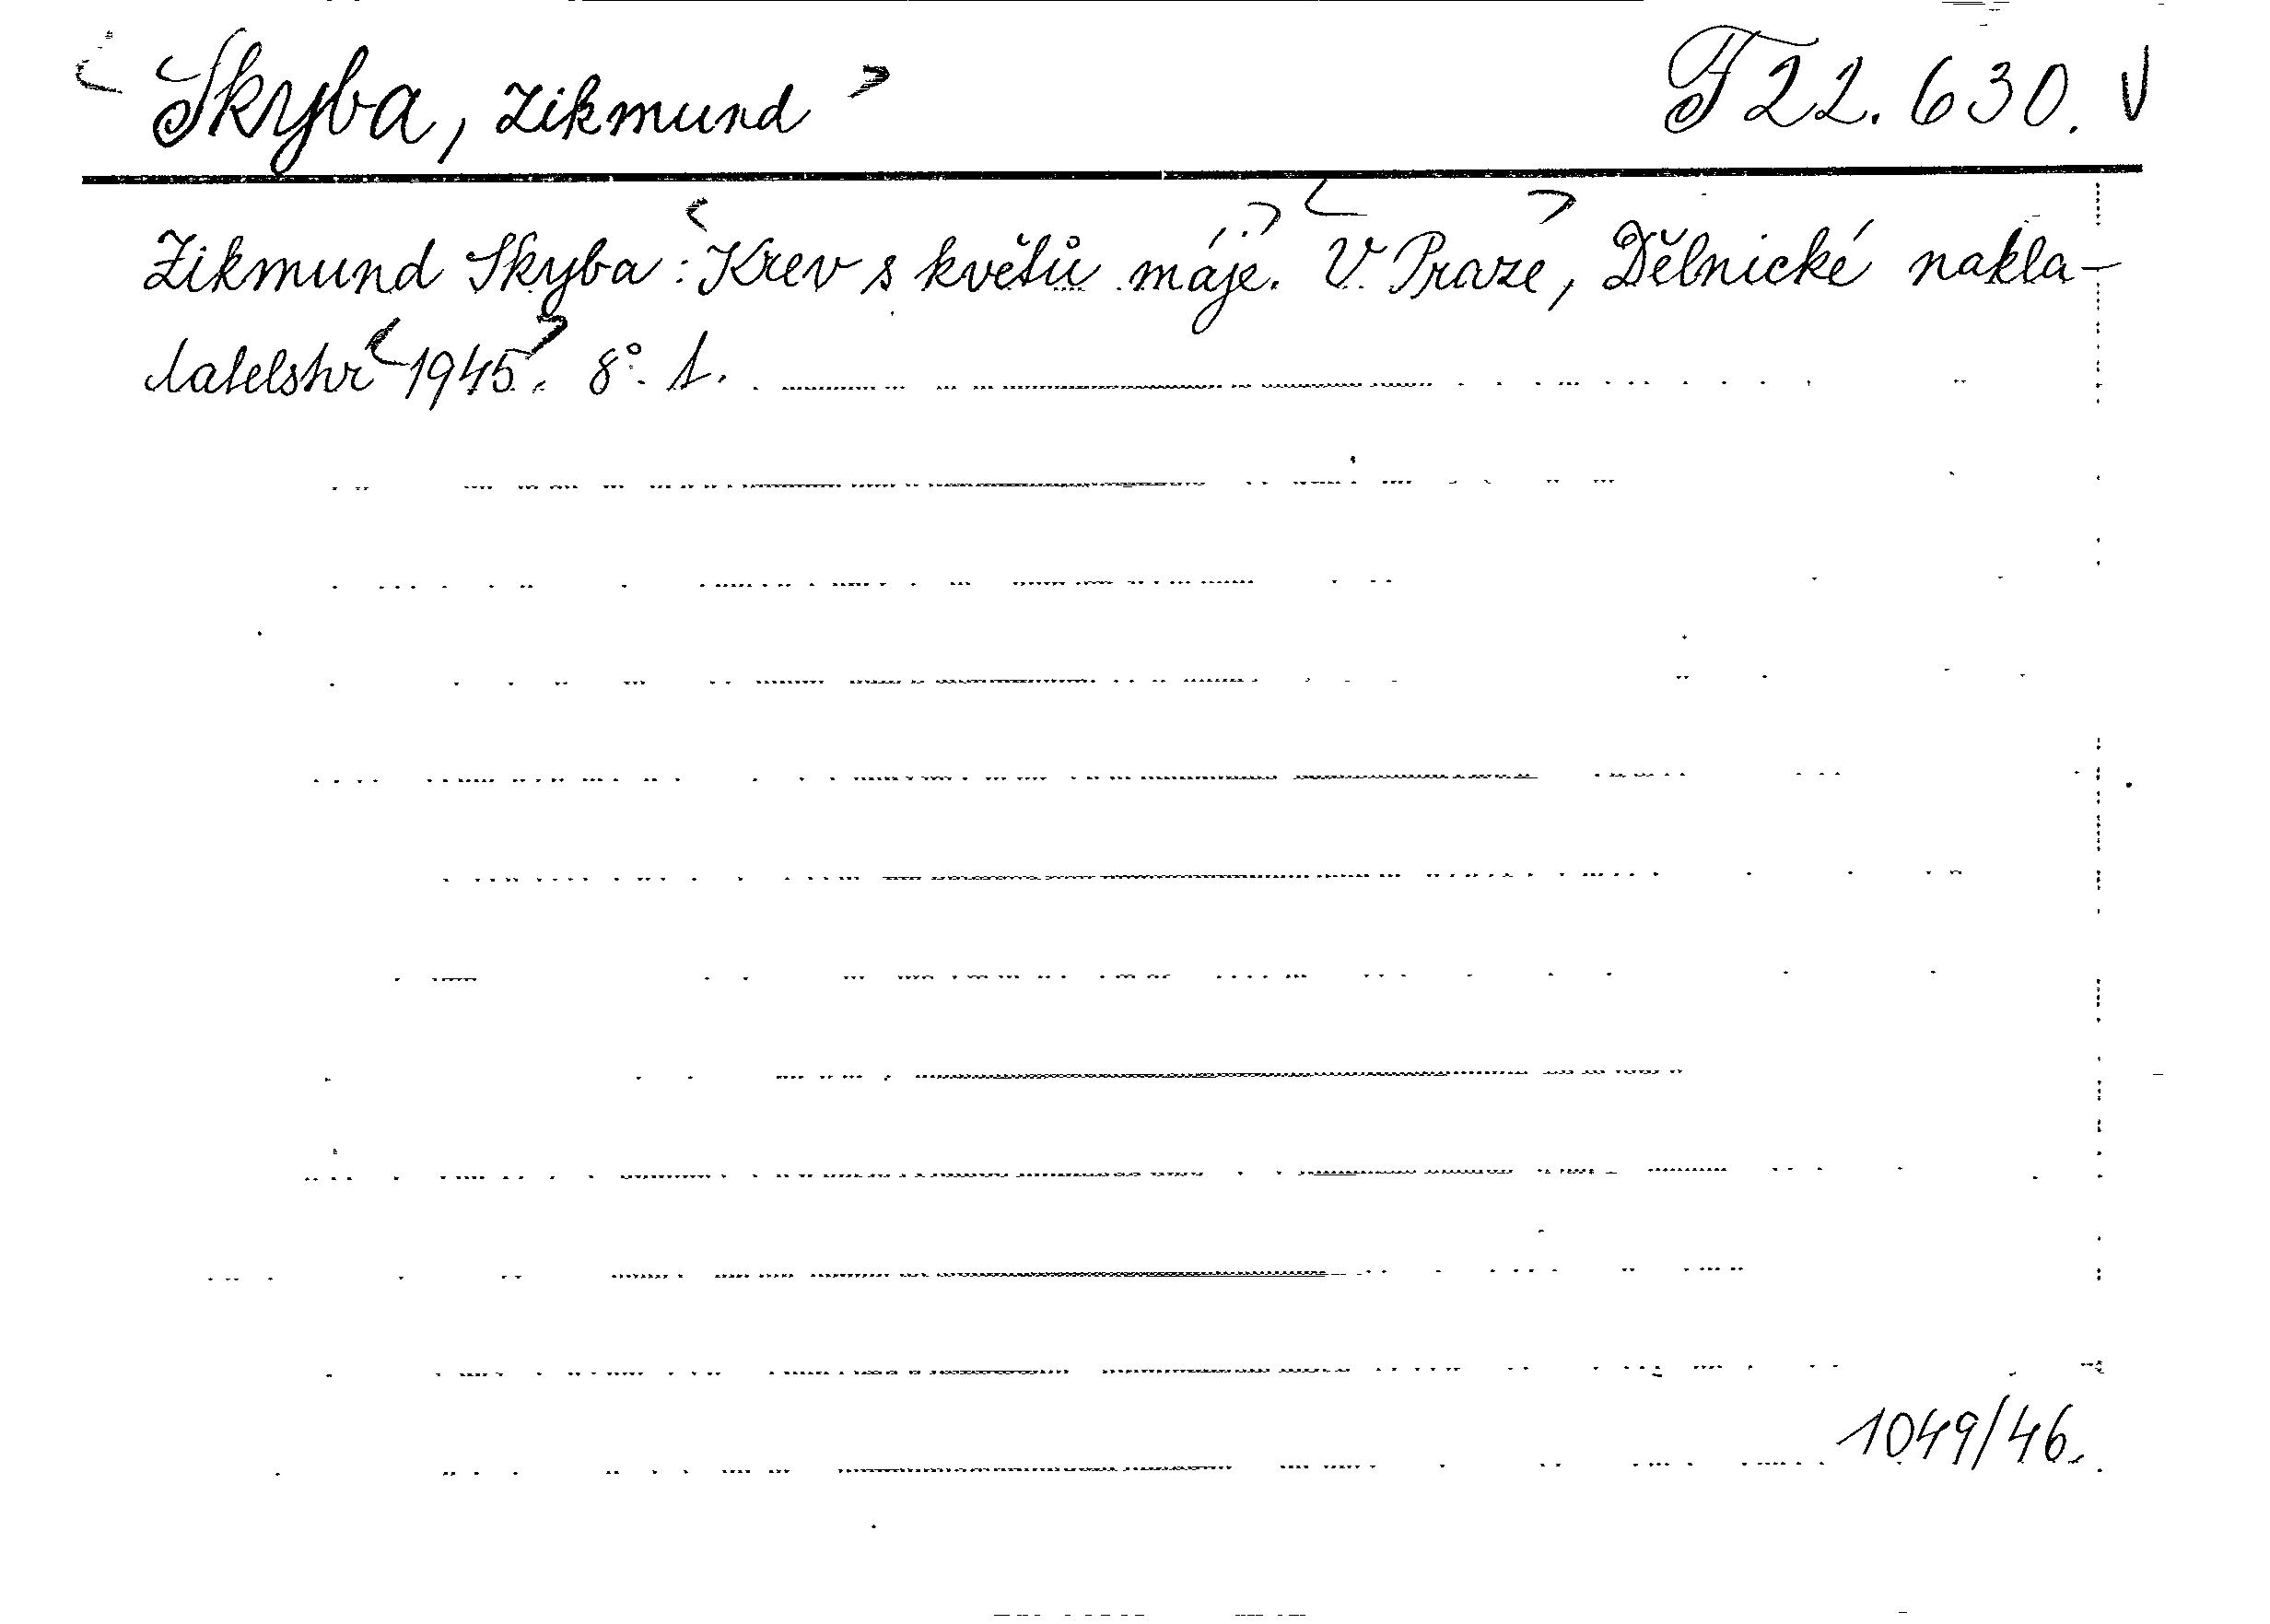 < Skyba, Zikmund > F 22.630. V
Zikmund Skyba: <Krev s květů máje.> <V Praze>, Dělnické nakla-
datelstv <1945>. 8°. 1.
1049/46.